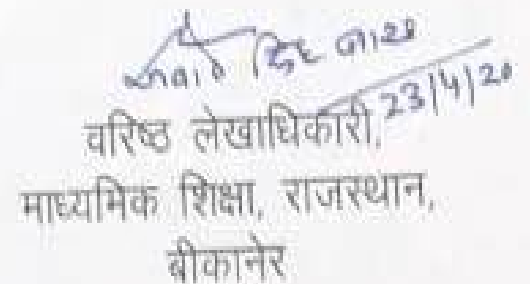 23/4/20
वरिष्ठ लेखाधिकारी,
माध्यमिक शिक्षा, राजस्थान,
बीकानेर